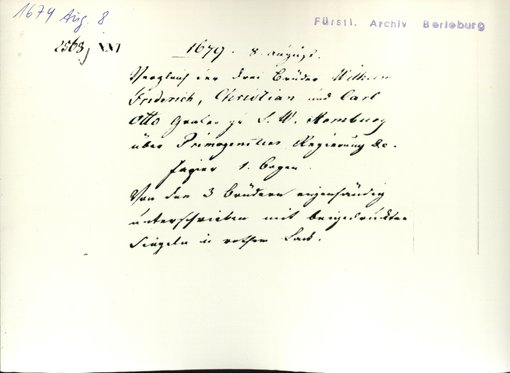 1679 Aug. 8
Fürstl. Archiv Berleburg
2563 XXI
1679. 8. August.
Vergleich der drei Brüder Wilhelm
Friderich, Christian und Carl
Otto Grafen zu S. W. Homburg
über Primogenitur Regierung &c.
Papier 1. Bogen.
Von den 3 Brüdern eigenhändig
unterschrieben mit beigedruckten
Siegeln in rothem Lack.